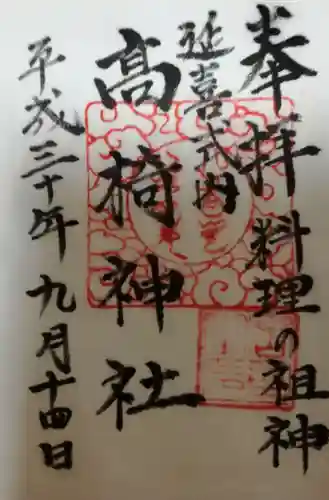 奉拝 料理の祖神
延喜式内
高椅神社
平成三十年九月十四日